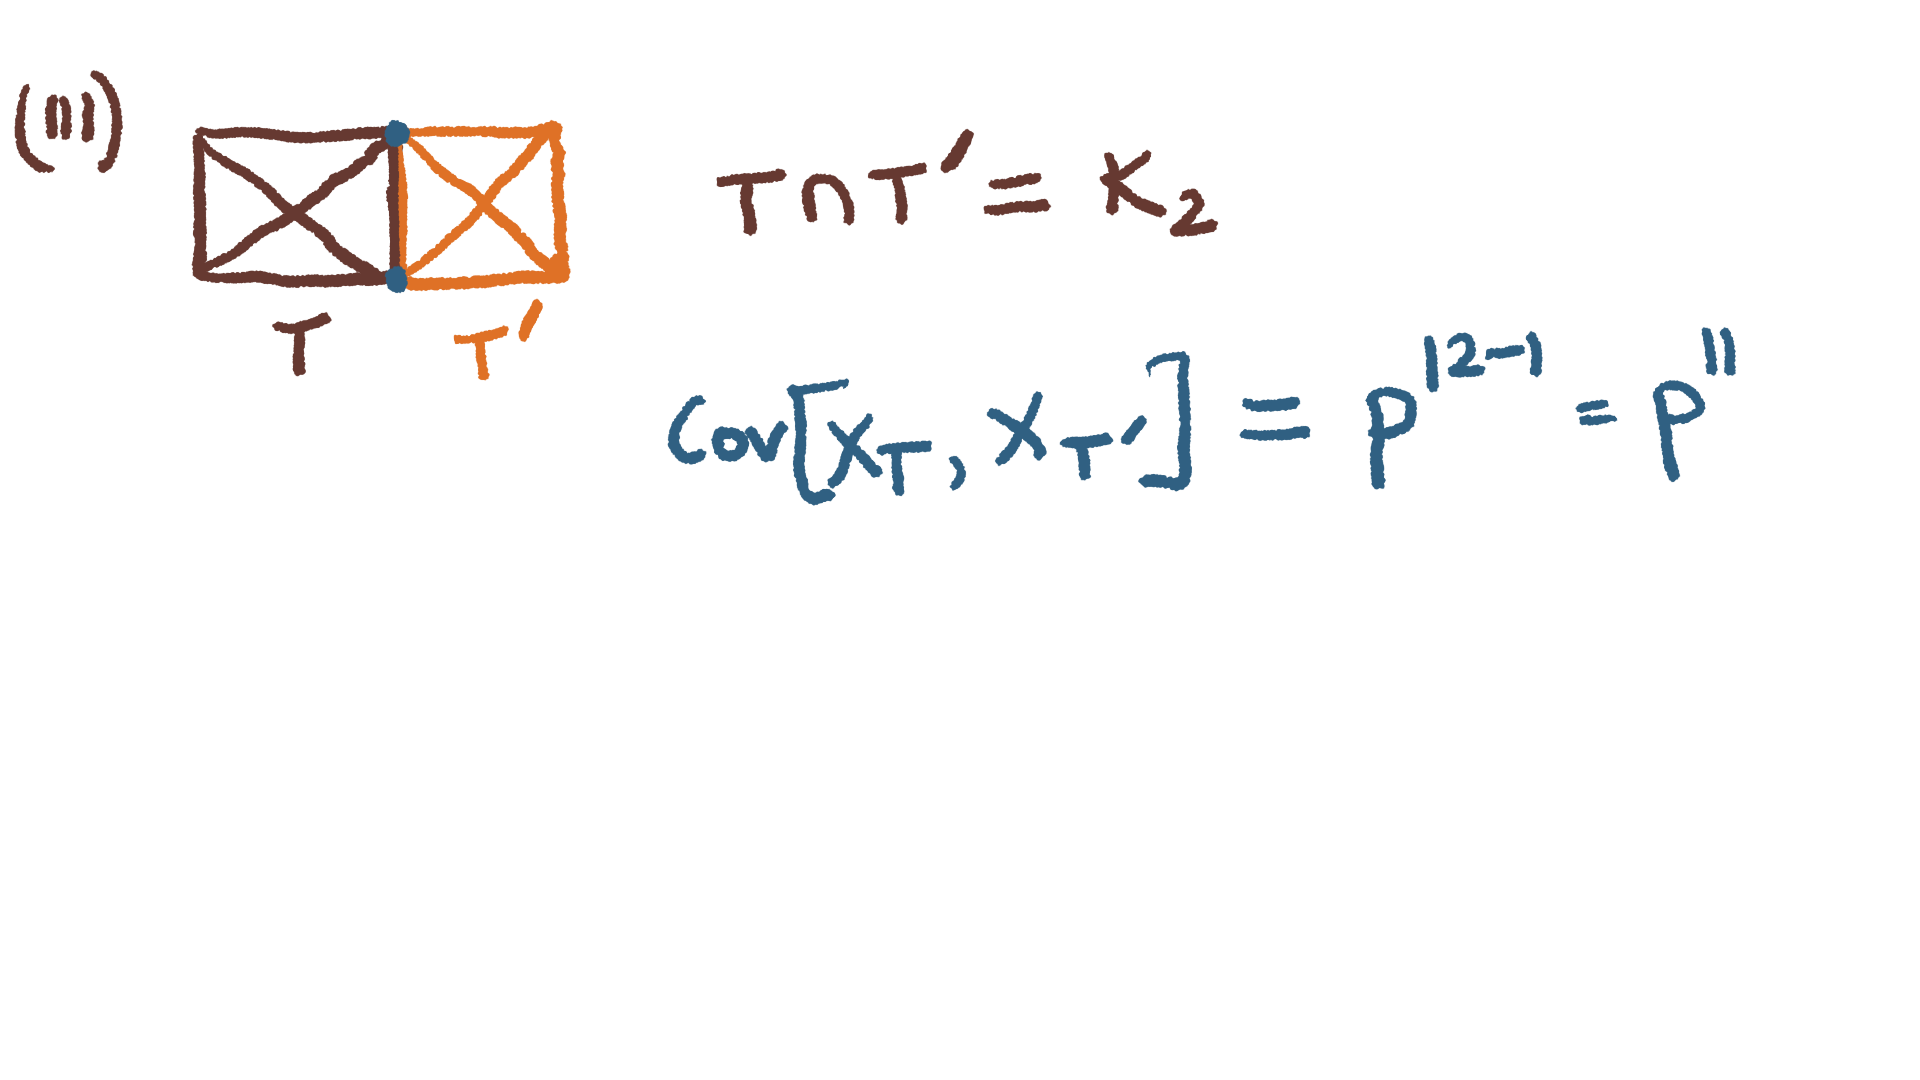 (III)
T ∩ T' = K₂
T T'
Cov[X_T, X_T'] = p^{12-1} = p^{11}